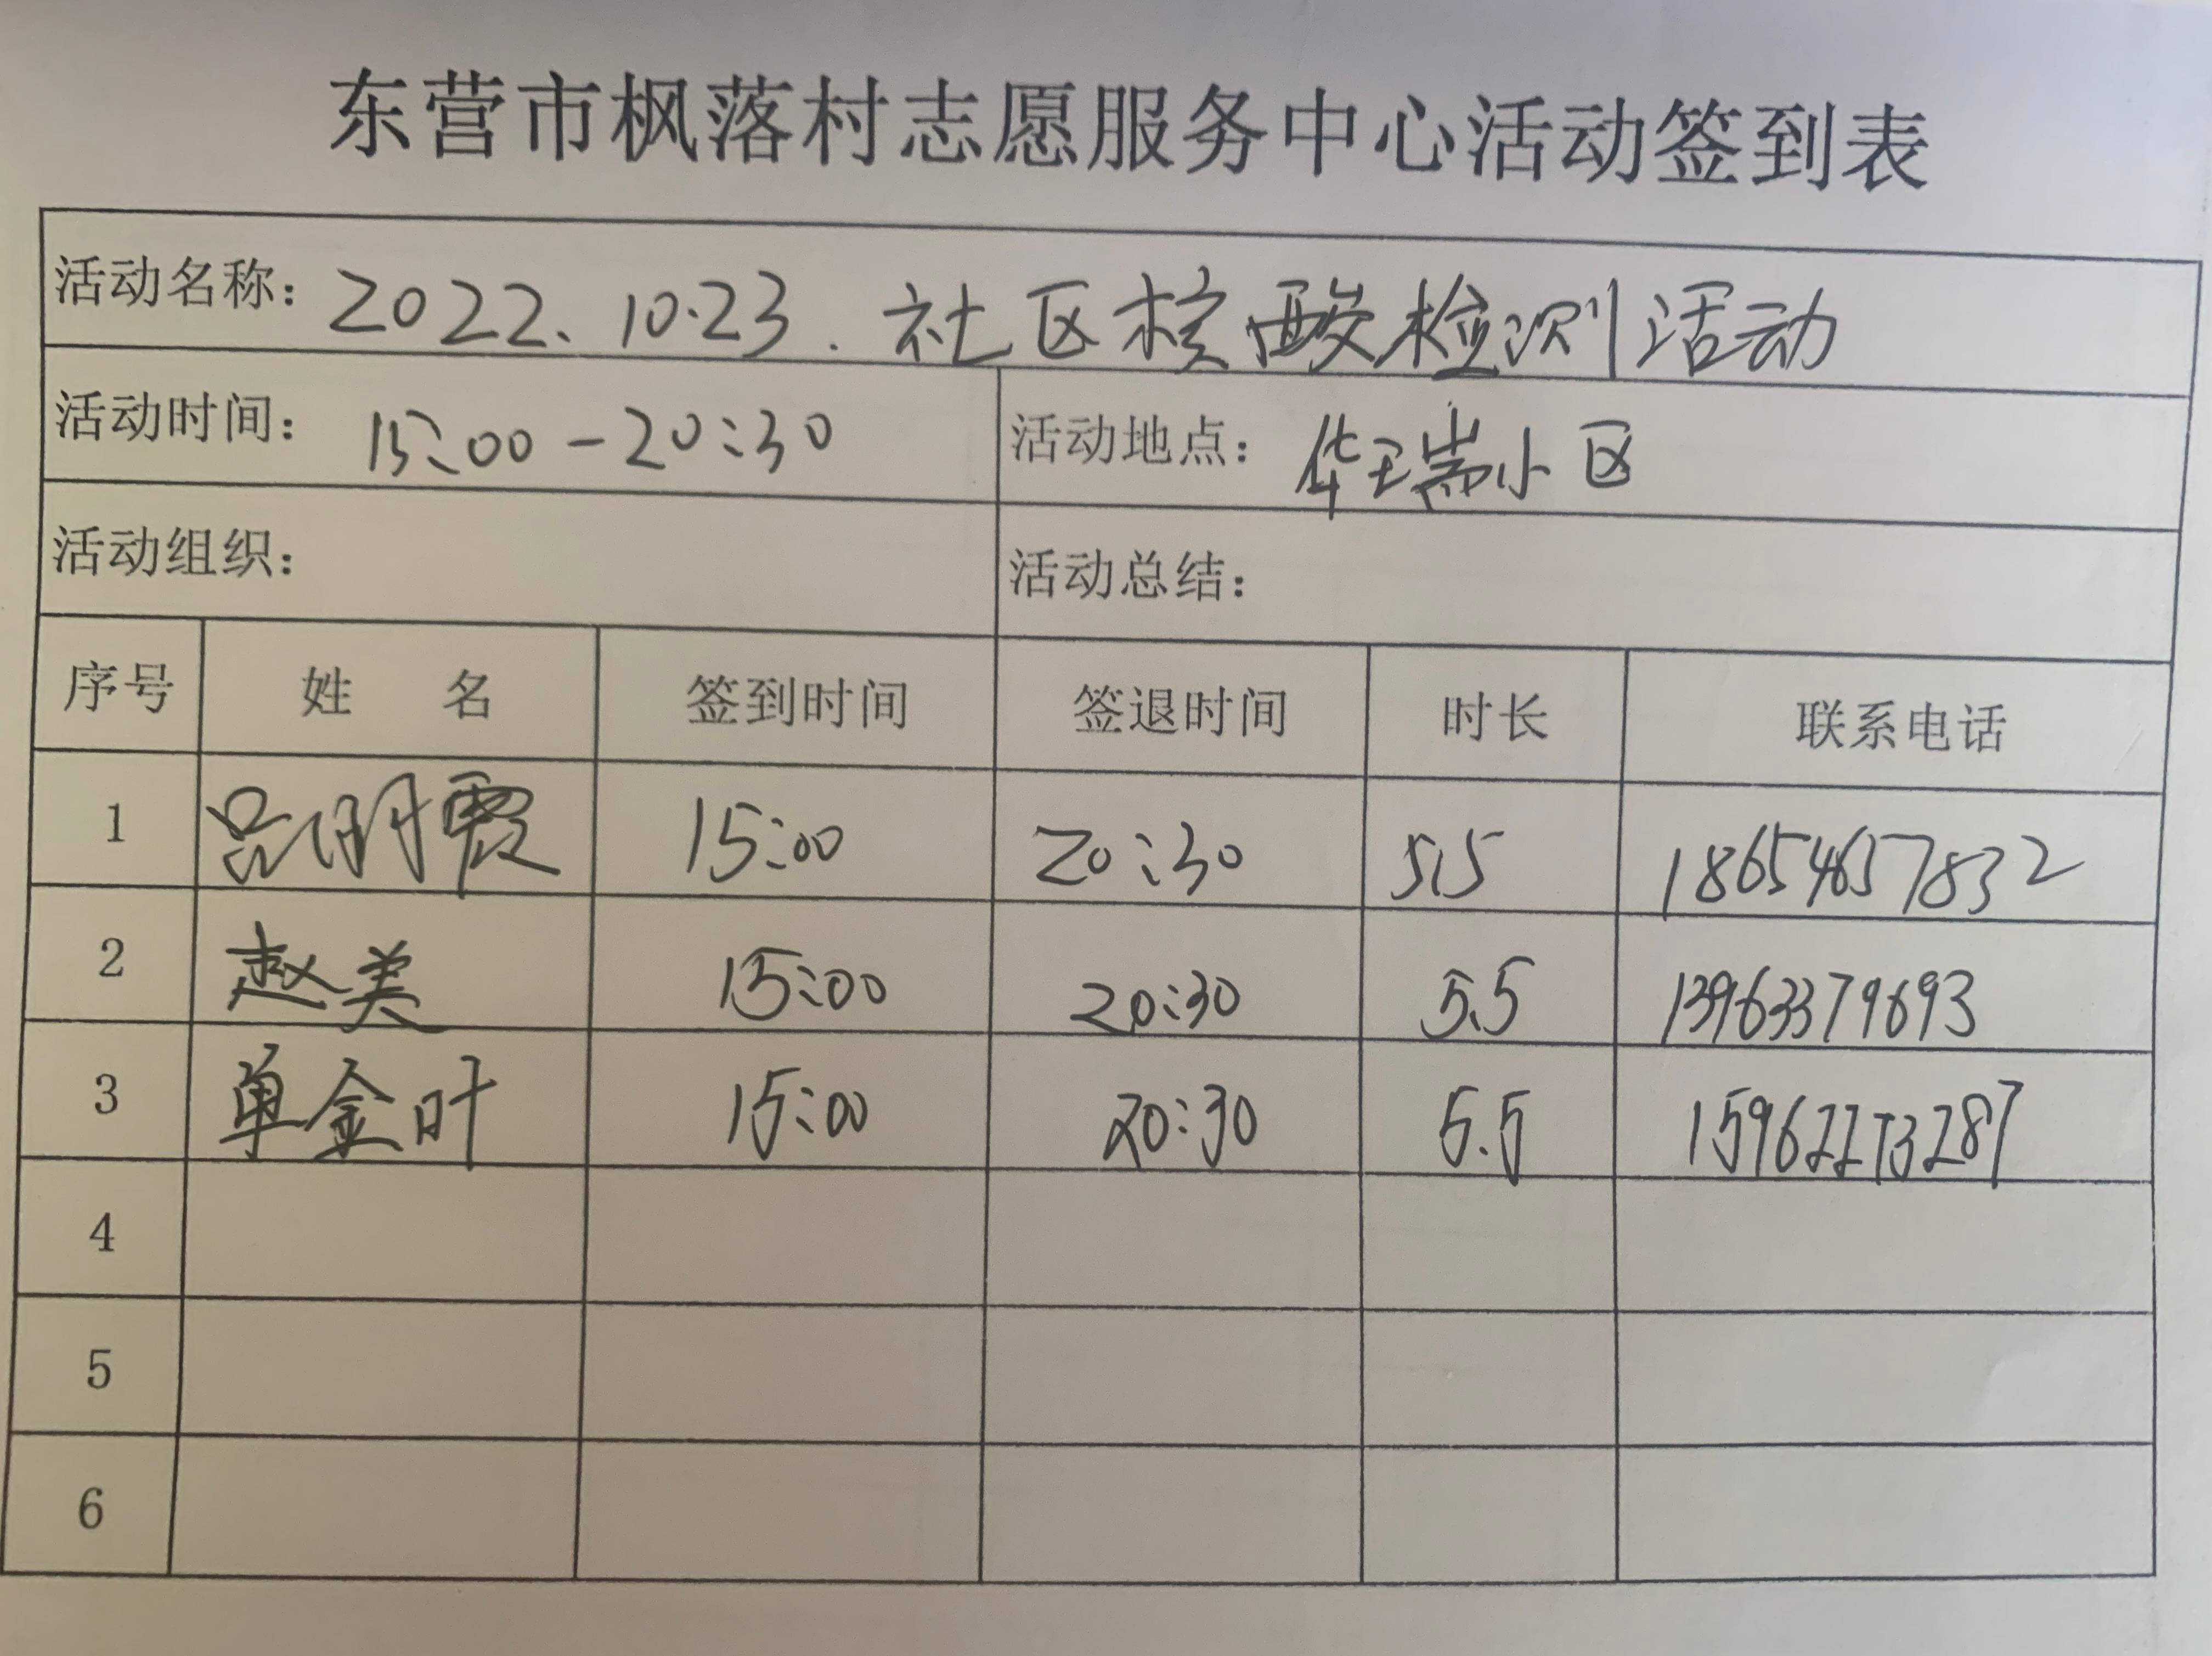 东营市枫落村志愿服务中心活动签到表
活动名称：2022.10.23.社区核酸检测活动
活动时间：15:00-20:30 活动地点：华瑞小区
活动组织： 活动总结：
序号 姓 名 签到时间 签退时间 时长 联系电话
1 吕明霞 15:00 20:30 5.5 18654657832
2 赵美 15:00 20:30 5.5 13963379693
3 单金叶 15:00 20:30 5.5
4
5
6